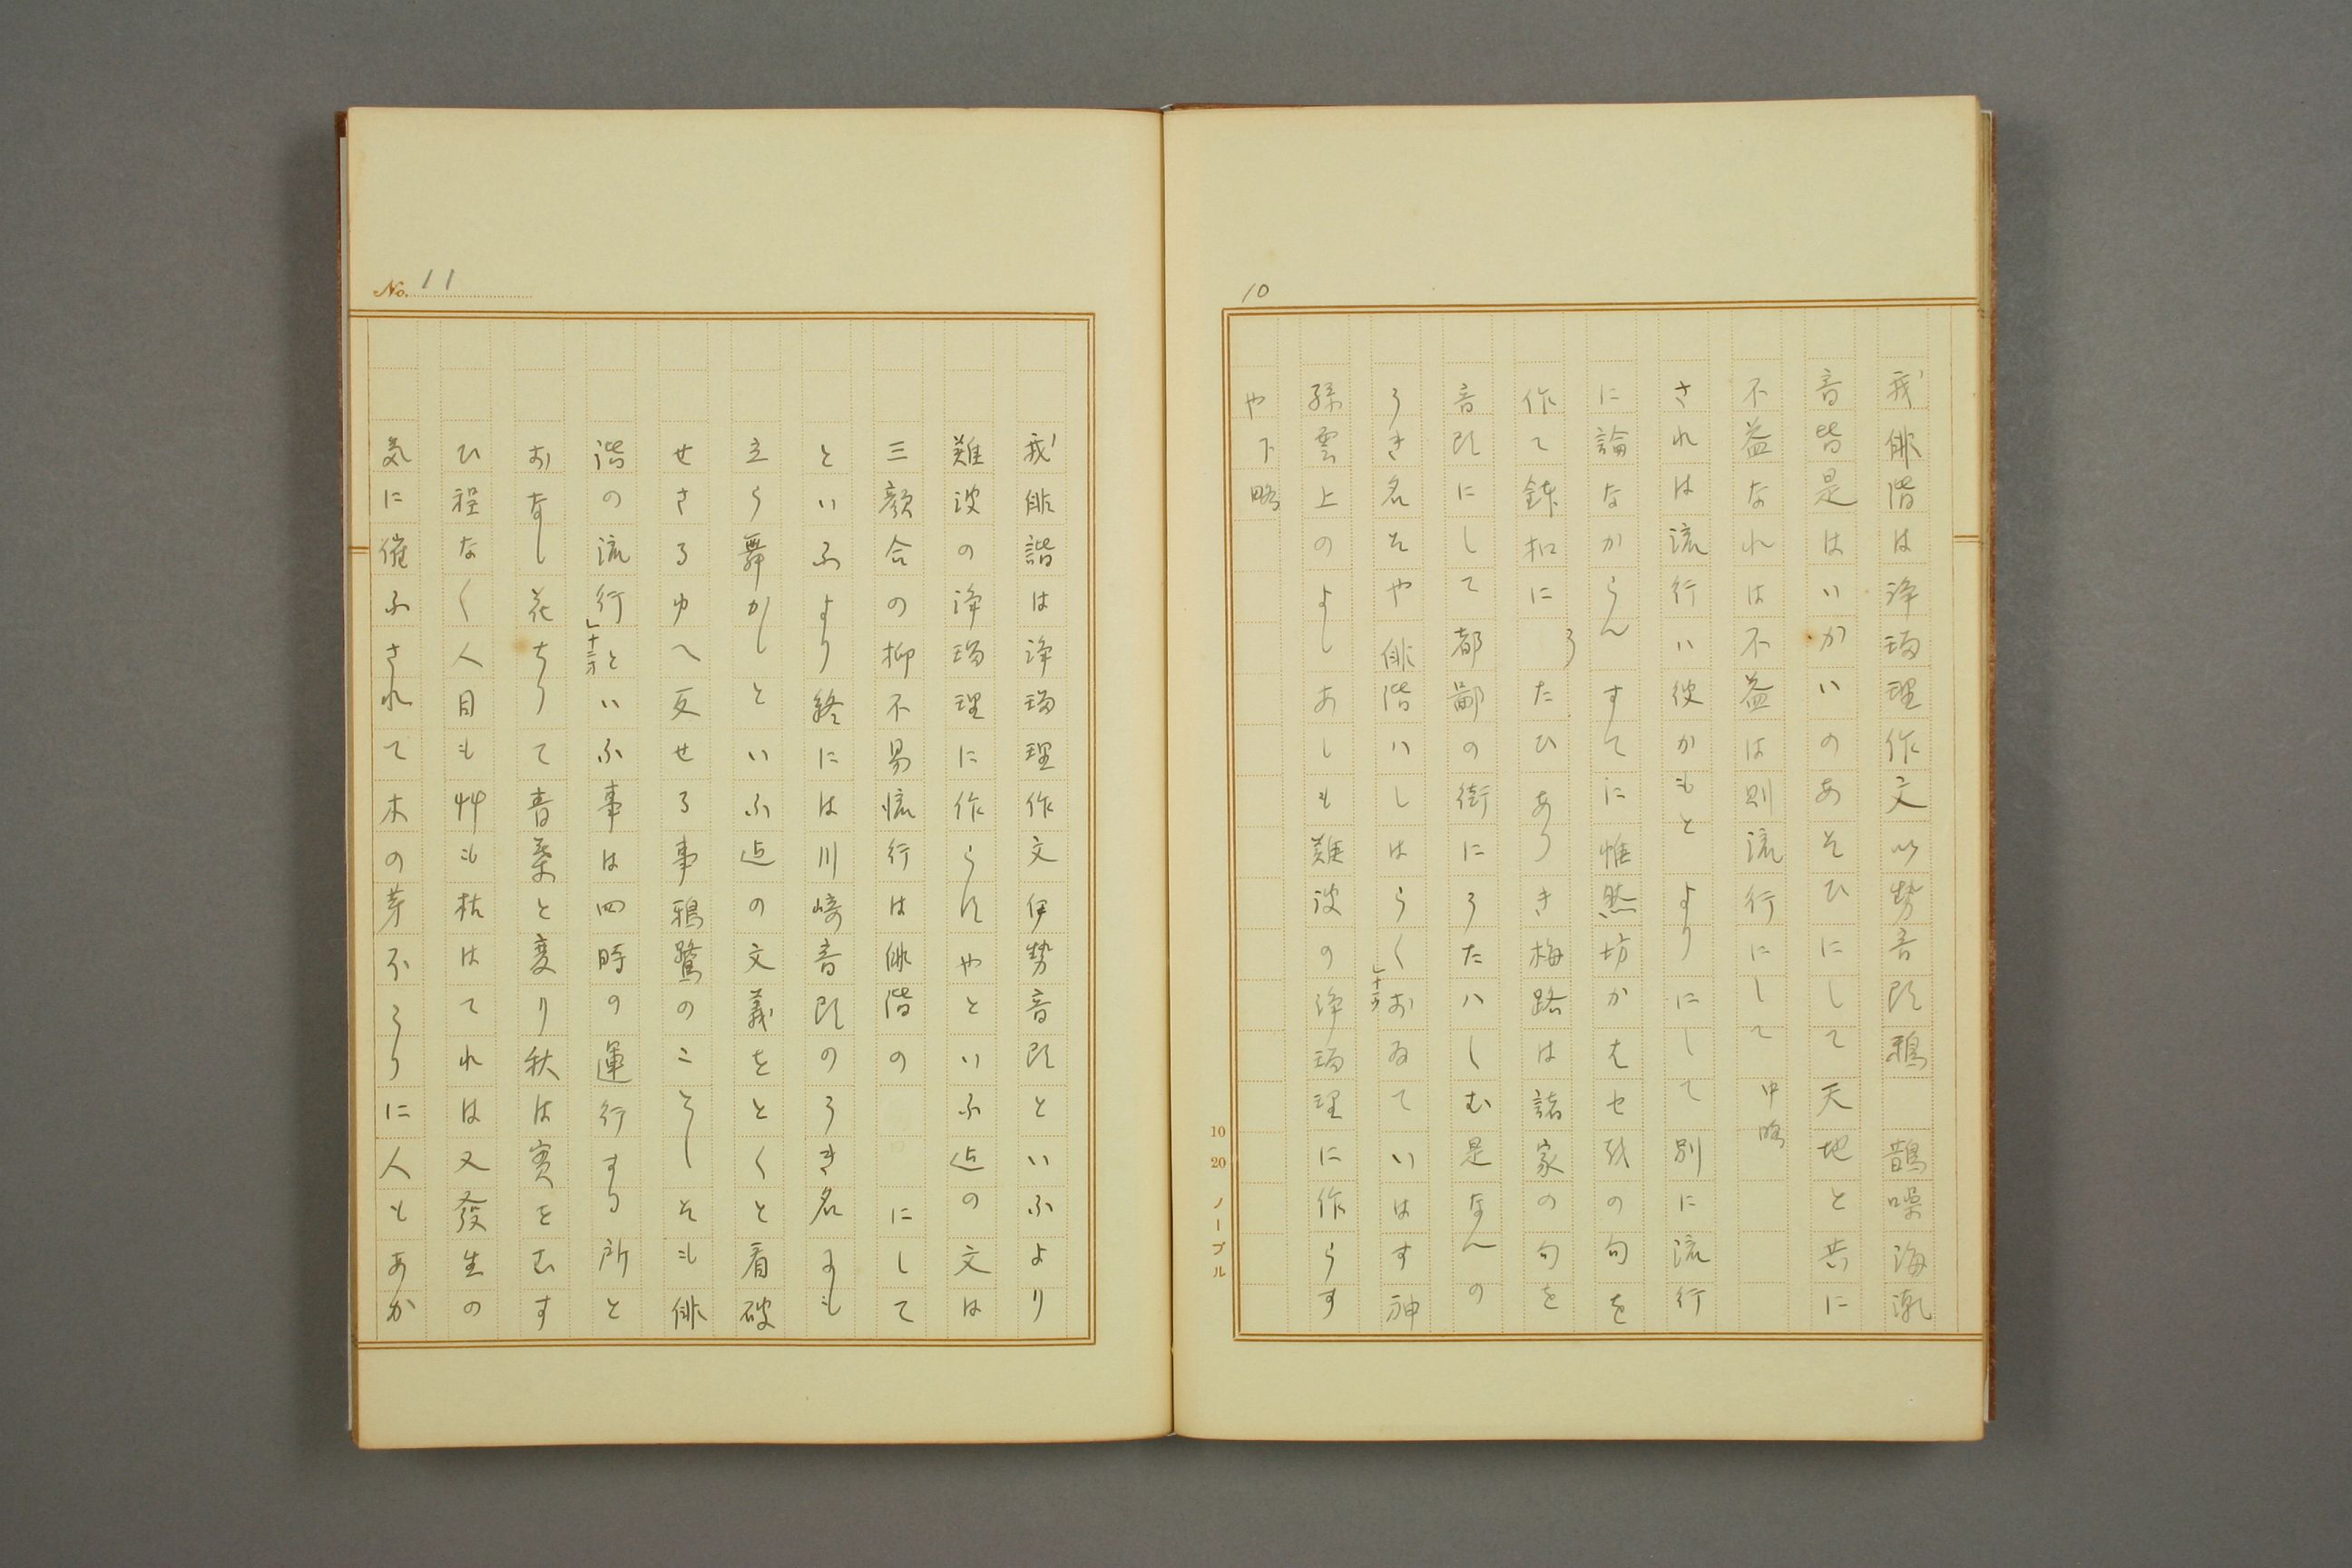 10
我俳偕は浄瑠理作文以勢音頭鴉 鵲噪海潮
音皆是はいかいのあそひにして天地と共に
不益なれは不益は則流行にして 中略
されは流行ハ彼かもとよりにして別に流行
に論なからんすてに惟然坊かはせ祓の句を
作て鉢扣にうたひありき梅路は諸家の句を
音頭にして都鄙の街にうたハしむ是なんの
うき名そや俳偕ハしはらく」十一ウおゐていはす神
孫雲上のよしあしも難波の浄瑠理に作らす
や下略
10 20 ノーブル
No. 11
我俳諧は浄瑠理作文伊勢音頭といふより
難波の浄瑠理に作られやといふ迄の文は
三顔合の抑不易流行は俳偕の にして
といふより終には川崎音頭のうき名よも
立らう舞かしといふ迄の文義をとくと看破
せさるゆへ反せる事鴉鷺のことしそも俳
諧の流行」十二オといふ事は四時の運行する所と
おなし花ちりて青葉と変り秋は実をむす
ひ程なく人目も艸も枯はてれは又發生の
気に催ふされて木の芽不とりに人もあか